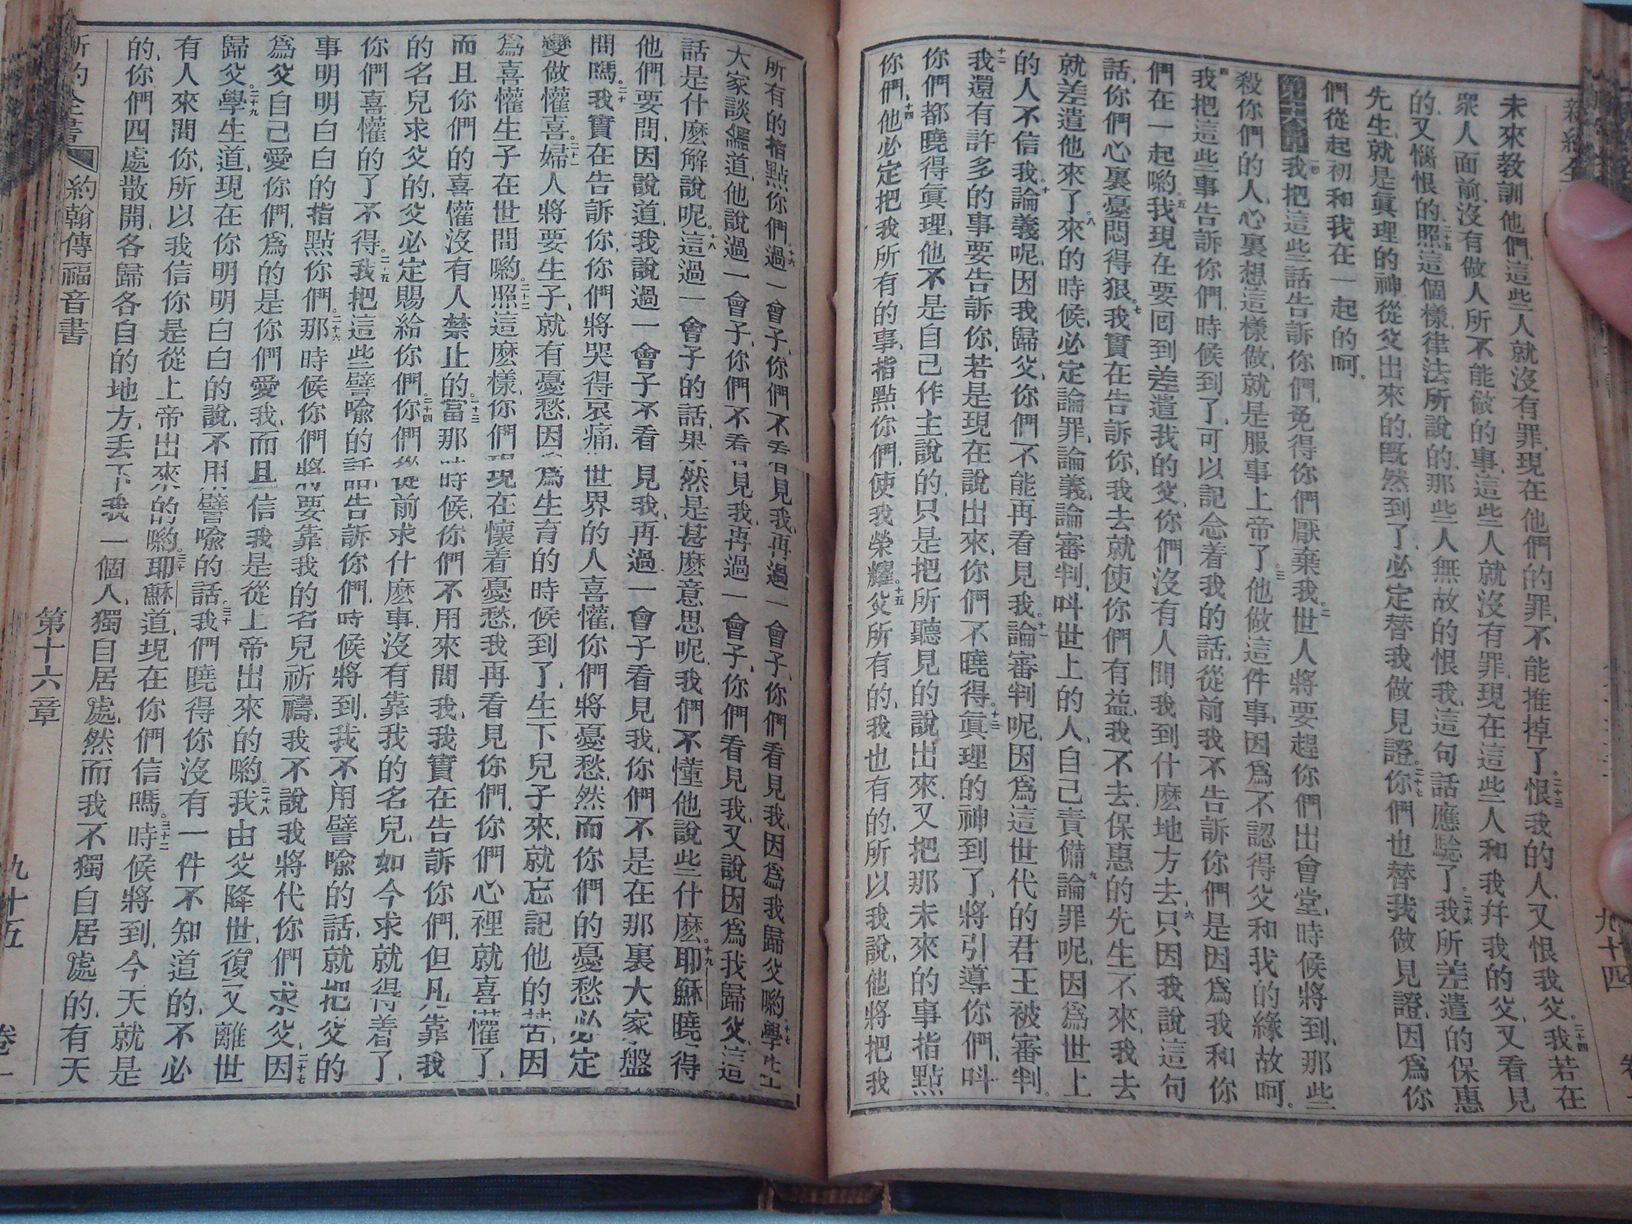 未來教訓他們、這些人就沒有罪、現在他們的罪、不能推掉了、二十三恨我的人、又恨我父、二十四我若在
衆人面前、沒有做人所不能做的事、這些人就沒有罪、現在這些人和我幷我的父、又看見
的、又惱恨的、二十五照這個樣、律法所說的、那些人無故的恨我、這句話應騐了、二十六我所差遣的保惠
先生、就是眞理的神、從父出來的、旣然到了、必定替我做見證、二十七你們也替我做見證、因爲你
們從起初和我在一起的呵。
第十六章一我把這些話告訴你們、免得你們厭棄我、二世人將要趕你們出會堂、時候將到、那些
殺你們的人、心裏想這樣做、就是服事上帝了、三他做這件事、因爲不認得父和我的緣故呵。
四我把這些事告訴你們、時候到了、可以記念着我的話、從前我不告訴你們、是因爲我和你
們在一起喲、五我現在要囘到差遣我的父、你們沒有人問我到什麽地方去、六只因我說這句
話、你們心裏憂悶得狠、七我實在告訴你、我去就使你們有益、我不去、保惠的先生不來、我去
就差遣他來了、八來的時候、必定論罪、論義、論審判、呌世上的人、自己責備、九論罪呢、因爲世上
的人不信我、十論義呢、因我歸父、你們不能再看見我、十一論審判呢、因爲這世代的君王被審判。
十二我還有許多的事要告訴你、若是現在說出來、你們不曉得、十三眞理的神到了、將引導你們、呌
你們都曉得眞理、他不是自己作主說的、只是把所聽見的說出來、又把那未來的事指點
你們、十四他必定把我所有的事、指點你們、使我榮耀、十五父所有的、我也有的、所以我說、他將把我
所有的指點你們、十六過一會子、你們不看見我、再過一會子、你們看見我、因爲我歸父喲、十七學生
大家談䌰道、他說過一會子、你們不看見我、再過一會子、你們看見我、又說因爲我歸父、這
話是什麽解說呢、十八這過一會子的話、果然是甚麽意思呢、我們不懂他說些什麽、十九耶穌曉得
他們要問、因說道、我說過一會子不看見我、再過一會子看見我、你們不是在那裏大家盤
問嗎、二十我實在告訴你、你們將哭得哀痛、世界的人喜懽、你們將憂愁、然而你們的憂愁、必定
變做懽喜、二十一婦人將要生子、就有憂愁、因爲生育的時候到了、生下兒子來、就忘記他的苦、因
爲喜懽生子在世間喲、二十二照這麽樣、你們現在懷着憂愁、我再看見你們、你們心裡就喜懽了、
而且你們的喜懽沒有人禁止的、二十三當那時候、你們不用來問我、我實在告訴你們、但凡靠我
的名兒求父的、父必定賜給你們、二十四你們從前求什麽事、沒有靠我的名兒、如今求就得着了、
你們喜懽的了不得、二十五我把這些譬喩的話告訴你們、時候將到、我不用譬喩的話、就把父的
事明明白白的指點你們、二十六那時候你們將要靠我的名兒祈禱、我不說我將代你們求父、二十七因
爲父自己愛你們、爲的是你們愛我、而且信我是從上帝出來的喲、二十八我由父降世、復又離世
歸父、二十九學生道、現在你明明白白的說、不用譬喩的話、三十我們曉得你沒有一件不知道的、不必
有人來問你、所以我信你是從上帝出來的喲、三十一耶穌道、現在你們信嗎、三十二時候將到、今天就是
的、你們四處散開、各歸各自的地方、丟下我一個人、獨自居處、然而我不獨自居處的、有天
新約全書 約翰傳福音書 第十六章 九十五 卷一
九十四